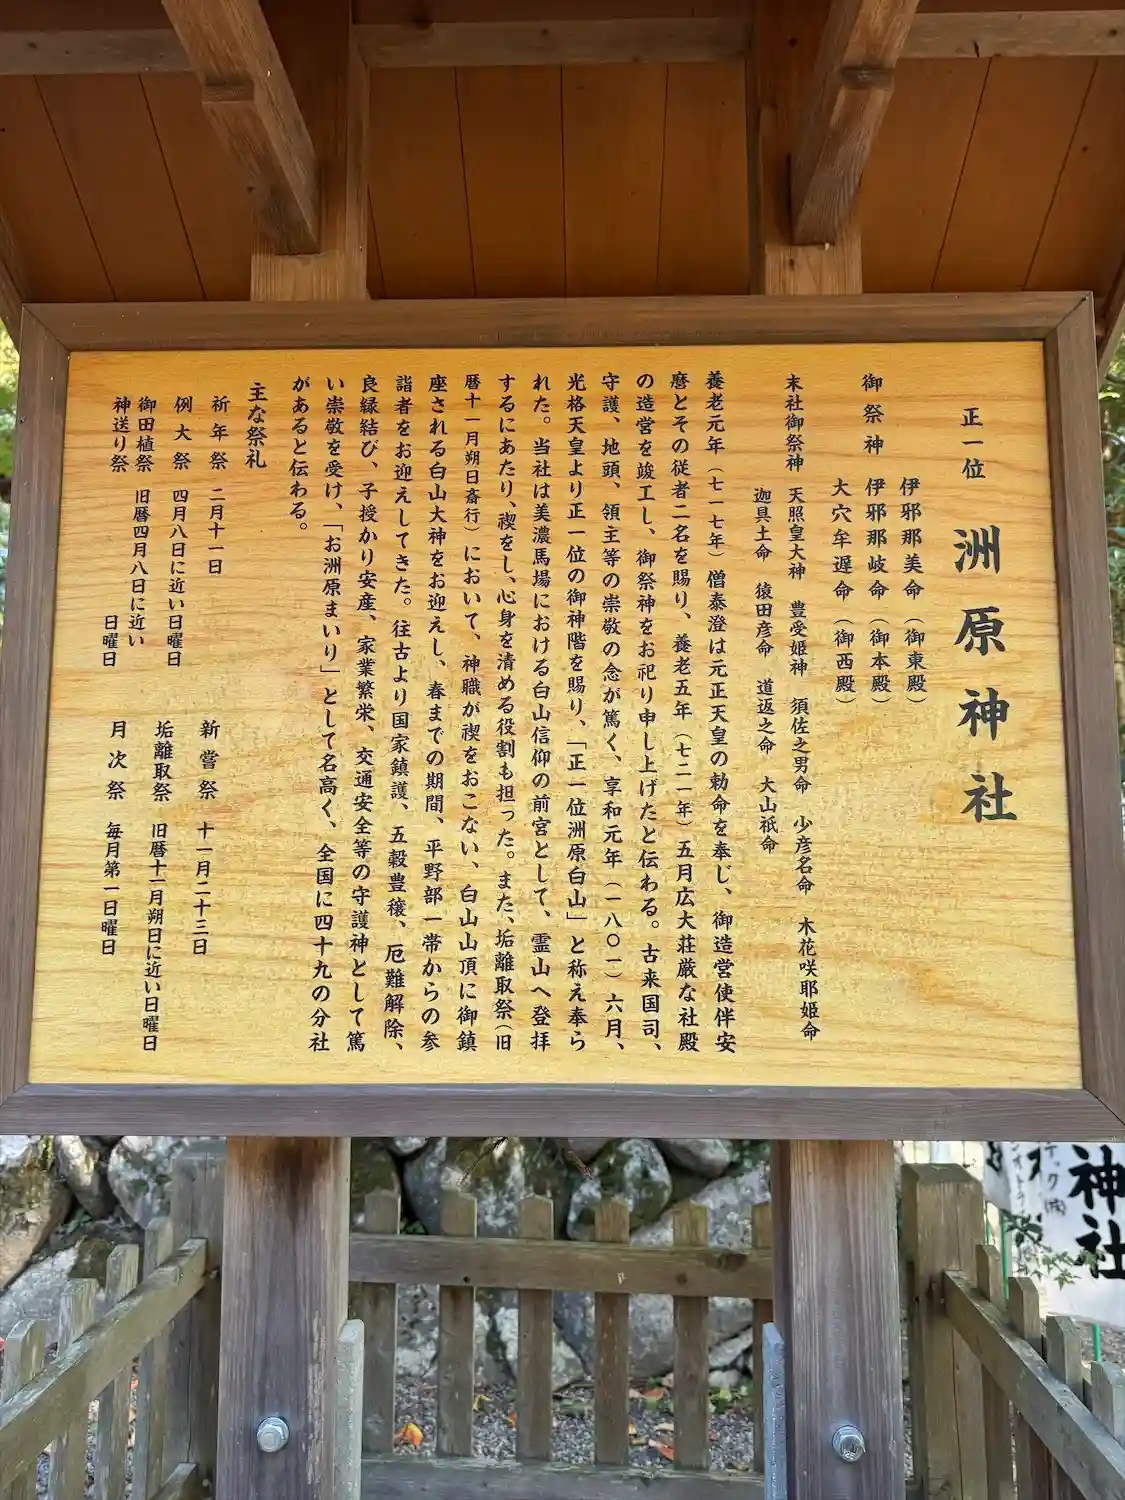 正一位 洲原神社
御祭神 伊邪那美命（御東殿）
伊邪那岐命（御本殿）
大穴牟遅命（御西殿）
末社御祭神 天照皇大神 豊受姫神 須佐之男命 少彦名命 木花咲耶姫命
迦具土命 猿田彦命 道返之命 大山祇命
養老元年（七一七年）僧泰澄は元正天皇の勅命を奉じ、御造営使伴安
麿とその従者二名を賜り、養老五年（七二一年）五月広大荘厳な社殿
の造営を竣工し、御祭神をお祀り申し上げたと伝わる。古来国司、
守護、地頭、領主等の崇敬の念が篤く、享和元年（一八〇一）六月、
光格天皇より正一位の御神階を賜り、「正一位洲原白山」と称え奉ら
れた。当社は美濃馬場における白山信仰の前宮として、霊山へ登拝
するにあたり、禊をし、心身を清める役割も担った。また、垢離取祭（旧
暦十一月朔日斎行）において、神職が禊をおこない、白山山頂に御鎮
座される白山大神をお迎えし、春までの期間、平野部一帯からの参
詣者をお迎えしてきた。往古より国家鎮護、五穀豊穣、厄難解除、
良縁結び、子授かり安産、家業繁栄、交通安全等の守護神として篤
い崇敬を受け、「お洲原まいり」として名高く、全国に四十九の分社
があると伝わる。
主な祭礼
祈年祭 二月十一日
例大祭 四月八日に近い日曜日
御田植祭 旧暦四月八日に近い
神送り祭 日曜日
新嘗祭 十一月二十三日
垢離取祭 旧暦十一月朔日に近い日曜日
月次祭 毎月第一日曜日
神社